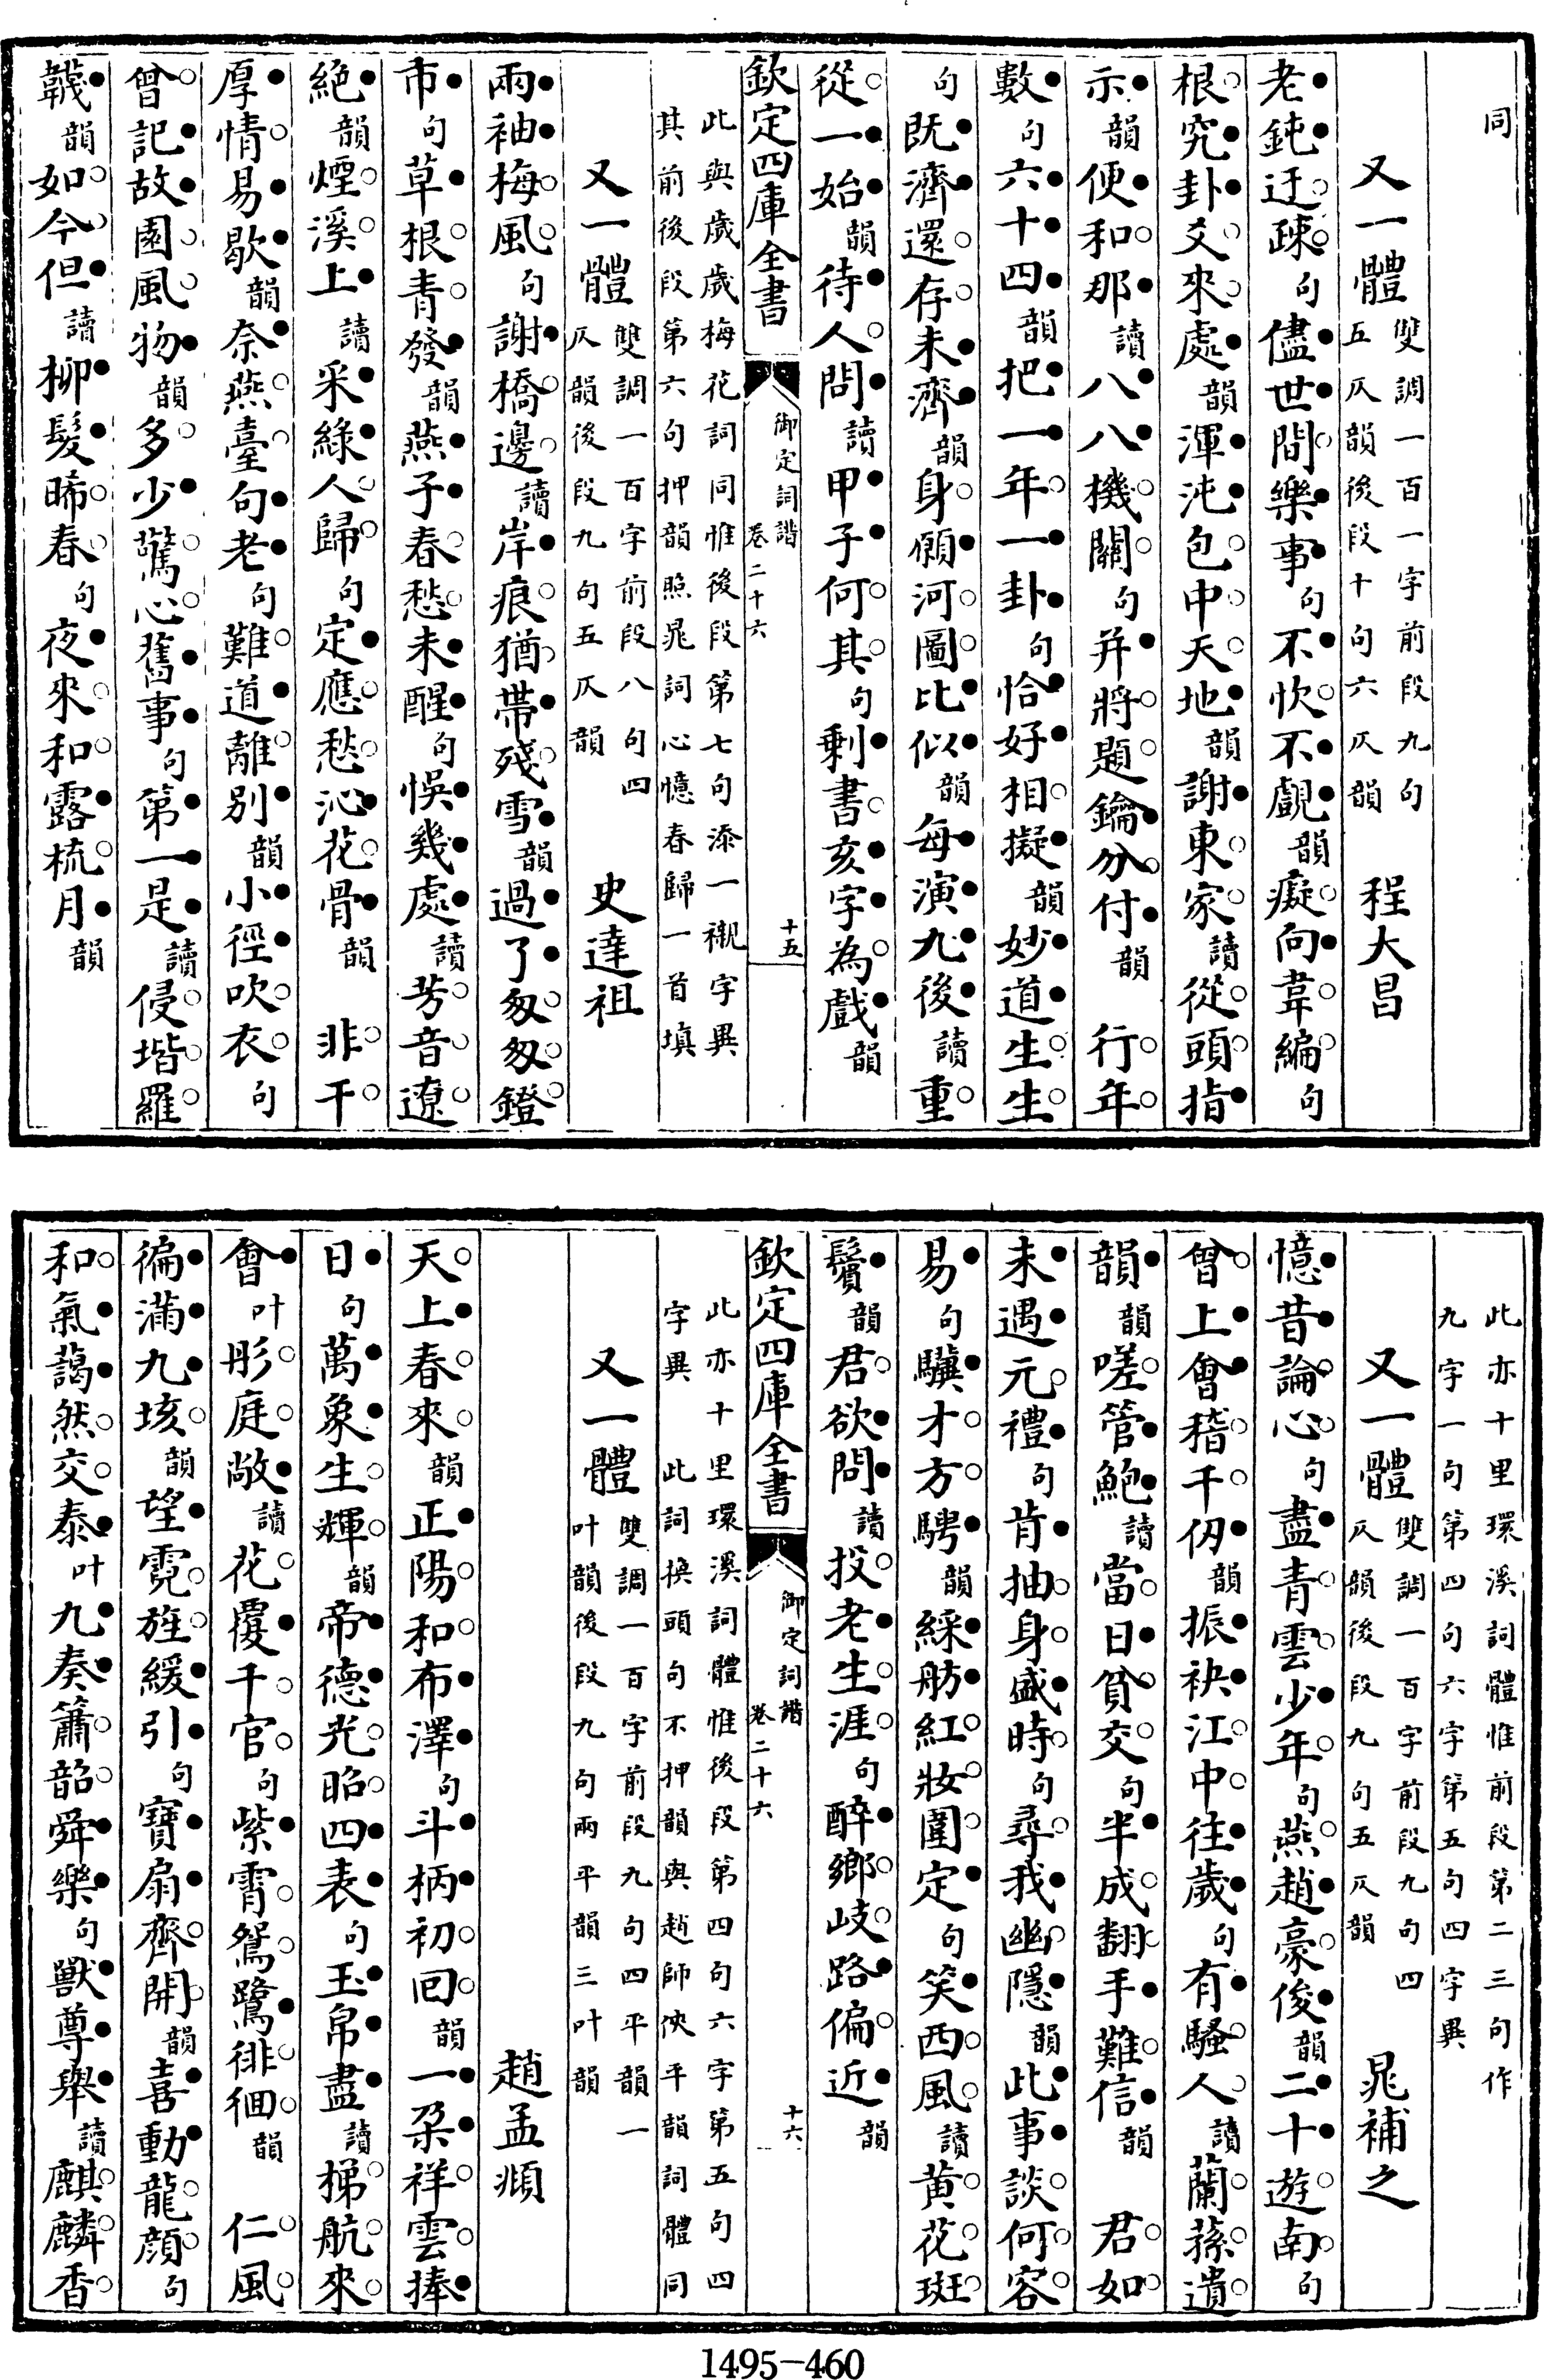 同
又一體雙調一百一字前段九句五仄韻後段十句六仄韻 程大昌
老鈍迂疎句儘世間樂事句不忺不覷韻癡向韋編句
根究卦爻來處韻渾沌包中天地韻謝東家讀從頭指
示韻便和那讀八八機關句并將題鑰分付韻 行年
數句六十四韻把一年一卦句恰好相擬韻妙道生生
句既濟還存未濟韻身願河圖比似韻每演九後讀重
從一始韻待人問讀甲子何其句剩書亥字為戲韻
欽定四庫全書 御定詞譜卷二十六 十五
此與歲歲梅花詞同惟後段第七句添一襯字異
其前後段第六句押韻照晁詞心憶春歸一首填
又一體雙調一百字前段八句四仄韻後段九句五仄韻 史達祖
兩袖梅風句謝橋邊讀岸痕猶帶殘雪韻過了匆匆鐙
市句草根青發韻燕子春愁未醒句悞幾處讀芳音遼
絕韻煙溪上讀采綠人歸句定應愁沁花骨韻 非干
厚情易歇韻奈燕臺句老句難道離別韻小徑吹衣句
曾記故園風物韻多少驚心舊事句第一是讀侵堦羅
韈韻如今但讀柳髮晞春句夜來和露梳月韻
此亦十里環溪詞體惟前段第二三句作
九字一句第四句六字第五句四字異
又一體雙調一百字前段九句四仄韻後段九句五仄韻 晁補之
憶昔論心句盡青雲少年句燕趙豪俊韻二十遊南句
曾上會稽千仞韻振袂江中往歲句有騷人讀蘭蓀遺
韻韻嗟管鮑讀當日貧交句半成翻手難信韻 君如
未遇元禮句肯抽身盛時句尋我幽隱韻此事談何容
易句驥才方騁韻綵舫紅妝圍定句笑西風讀黃花斑
鬢韻君欲問讀投老生涯句醉鄉岐路偏近韻
欽定四庫全書 御定詞譜卷二十六 十六
此亦十里環溪詞體惟後段第四句六字第五句四
字異 此詞換頭句不押韻與趙師俠平韻詞體同
又一體雙調一百字前段九句四平韻一叶韻後段九句兩平韻三叶韻
趙孟頫
天上春來韻正陽和布澤句斗柄初回韻一朵祥雲捧
日句萬象生輝韻帝德光昭四表句玉帛盡讀梯航來
會叶彤庭敞讀花覆千官句紫霄鴛鷺徘徊韻 仁風
徧滿九垓韻望霓旌緩引句寶扇齊開韻喜動龍顏句
和氣藹然交泰叶九奏簫韶舜樂句獸尊舉讀麒麟香
1495-460